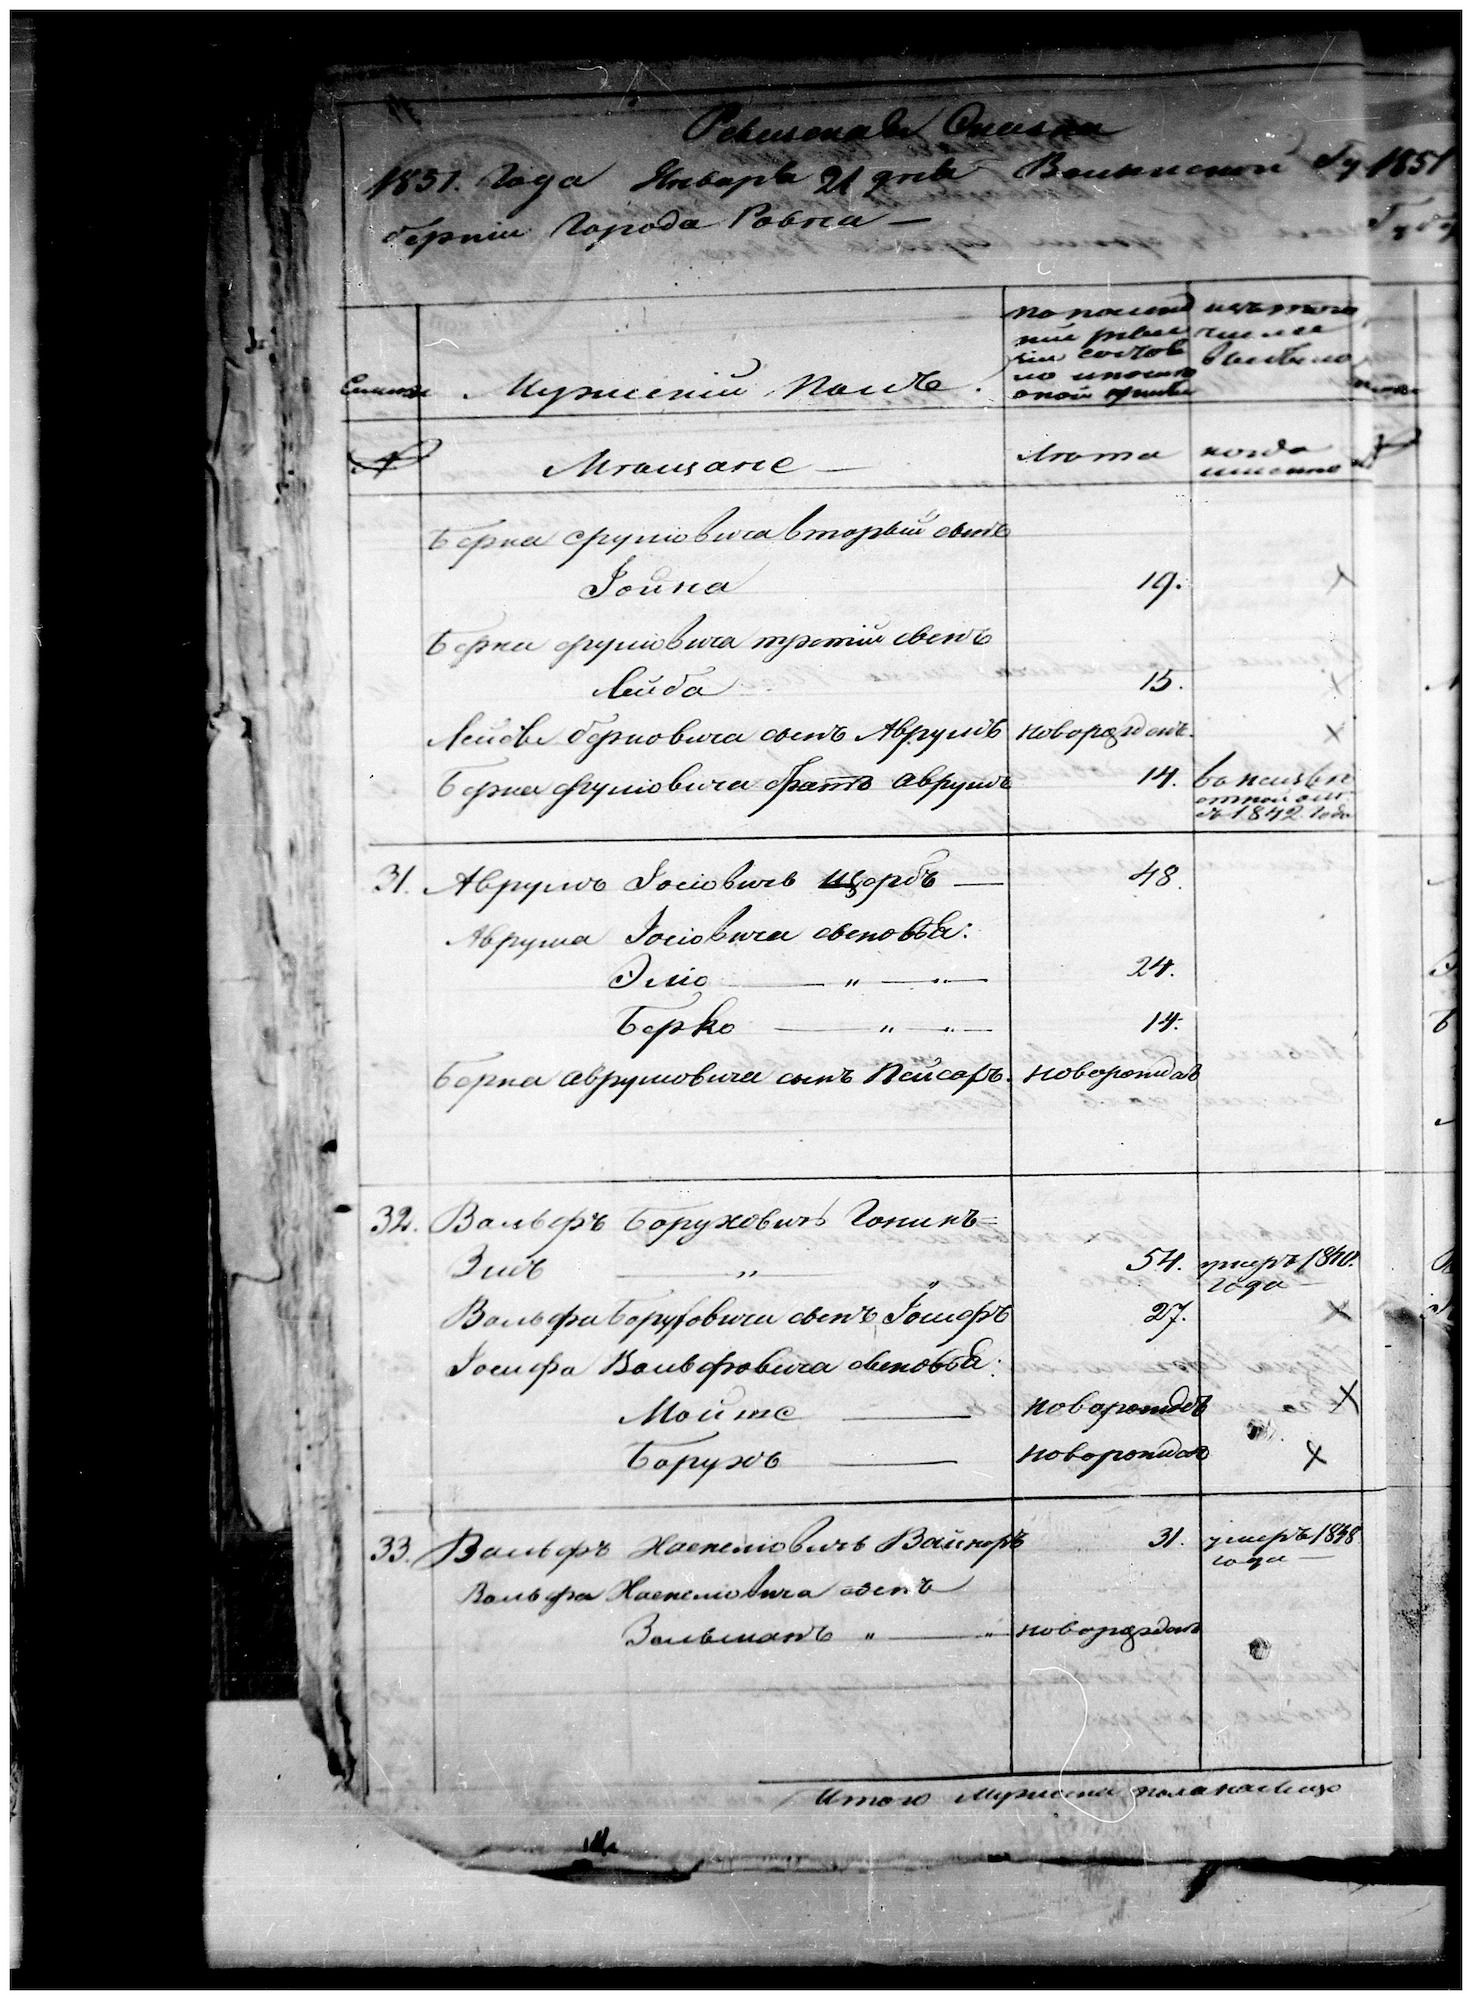 Ревизская Сказка
1851. Года Января 21 дня Волынской Гу
берніи Города Ровна —
Семьи
Мужескій Полъ.
по послед
ней реви
зіи состоя
ло и после
оной прибы
изъ того
числа
выбыло
№
Мѣщане —
Лѣта
когда
именно
Берка Сруліовича вторый сынъ
Іойна 19.
Берка Сруліовича третій сынъ
Лейба 15.
Лейбы Берковича сынъ Аврумъ новорожденъ.
Берка Сруліовича братъ Аврумъ 14.
въ неизвѣ
стной отл.
съ 1842 года
31. Аврумъ Іосіовичъ — 48.
Аврума Іосіовича сыновья:
Эліо — " — " — 24.
Берко — " — " — 14.
Берка Аврумовича сынъ Пейсахъ. новорожден
32. Вольфъ Боруховичъ Гоникъ=
Зилъ — " — " 54. умеръ 1840.
года —
Вольфа Боруховича сынъ Іосифъ 27.
Іосифа Вольфовича сыновья:
Мойше — новорожден
Борухъ — новорожден
33. Вольфъ Наскеліовичъ Вайнеръ 31. умеръ 1848
года —
Вольфа Наскеліовича сынъ
Зельманъ " — " новорожден
Итого Мужеска пола налицо
1851